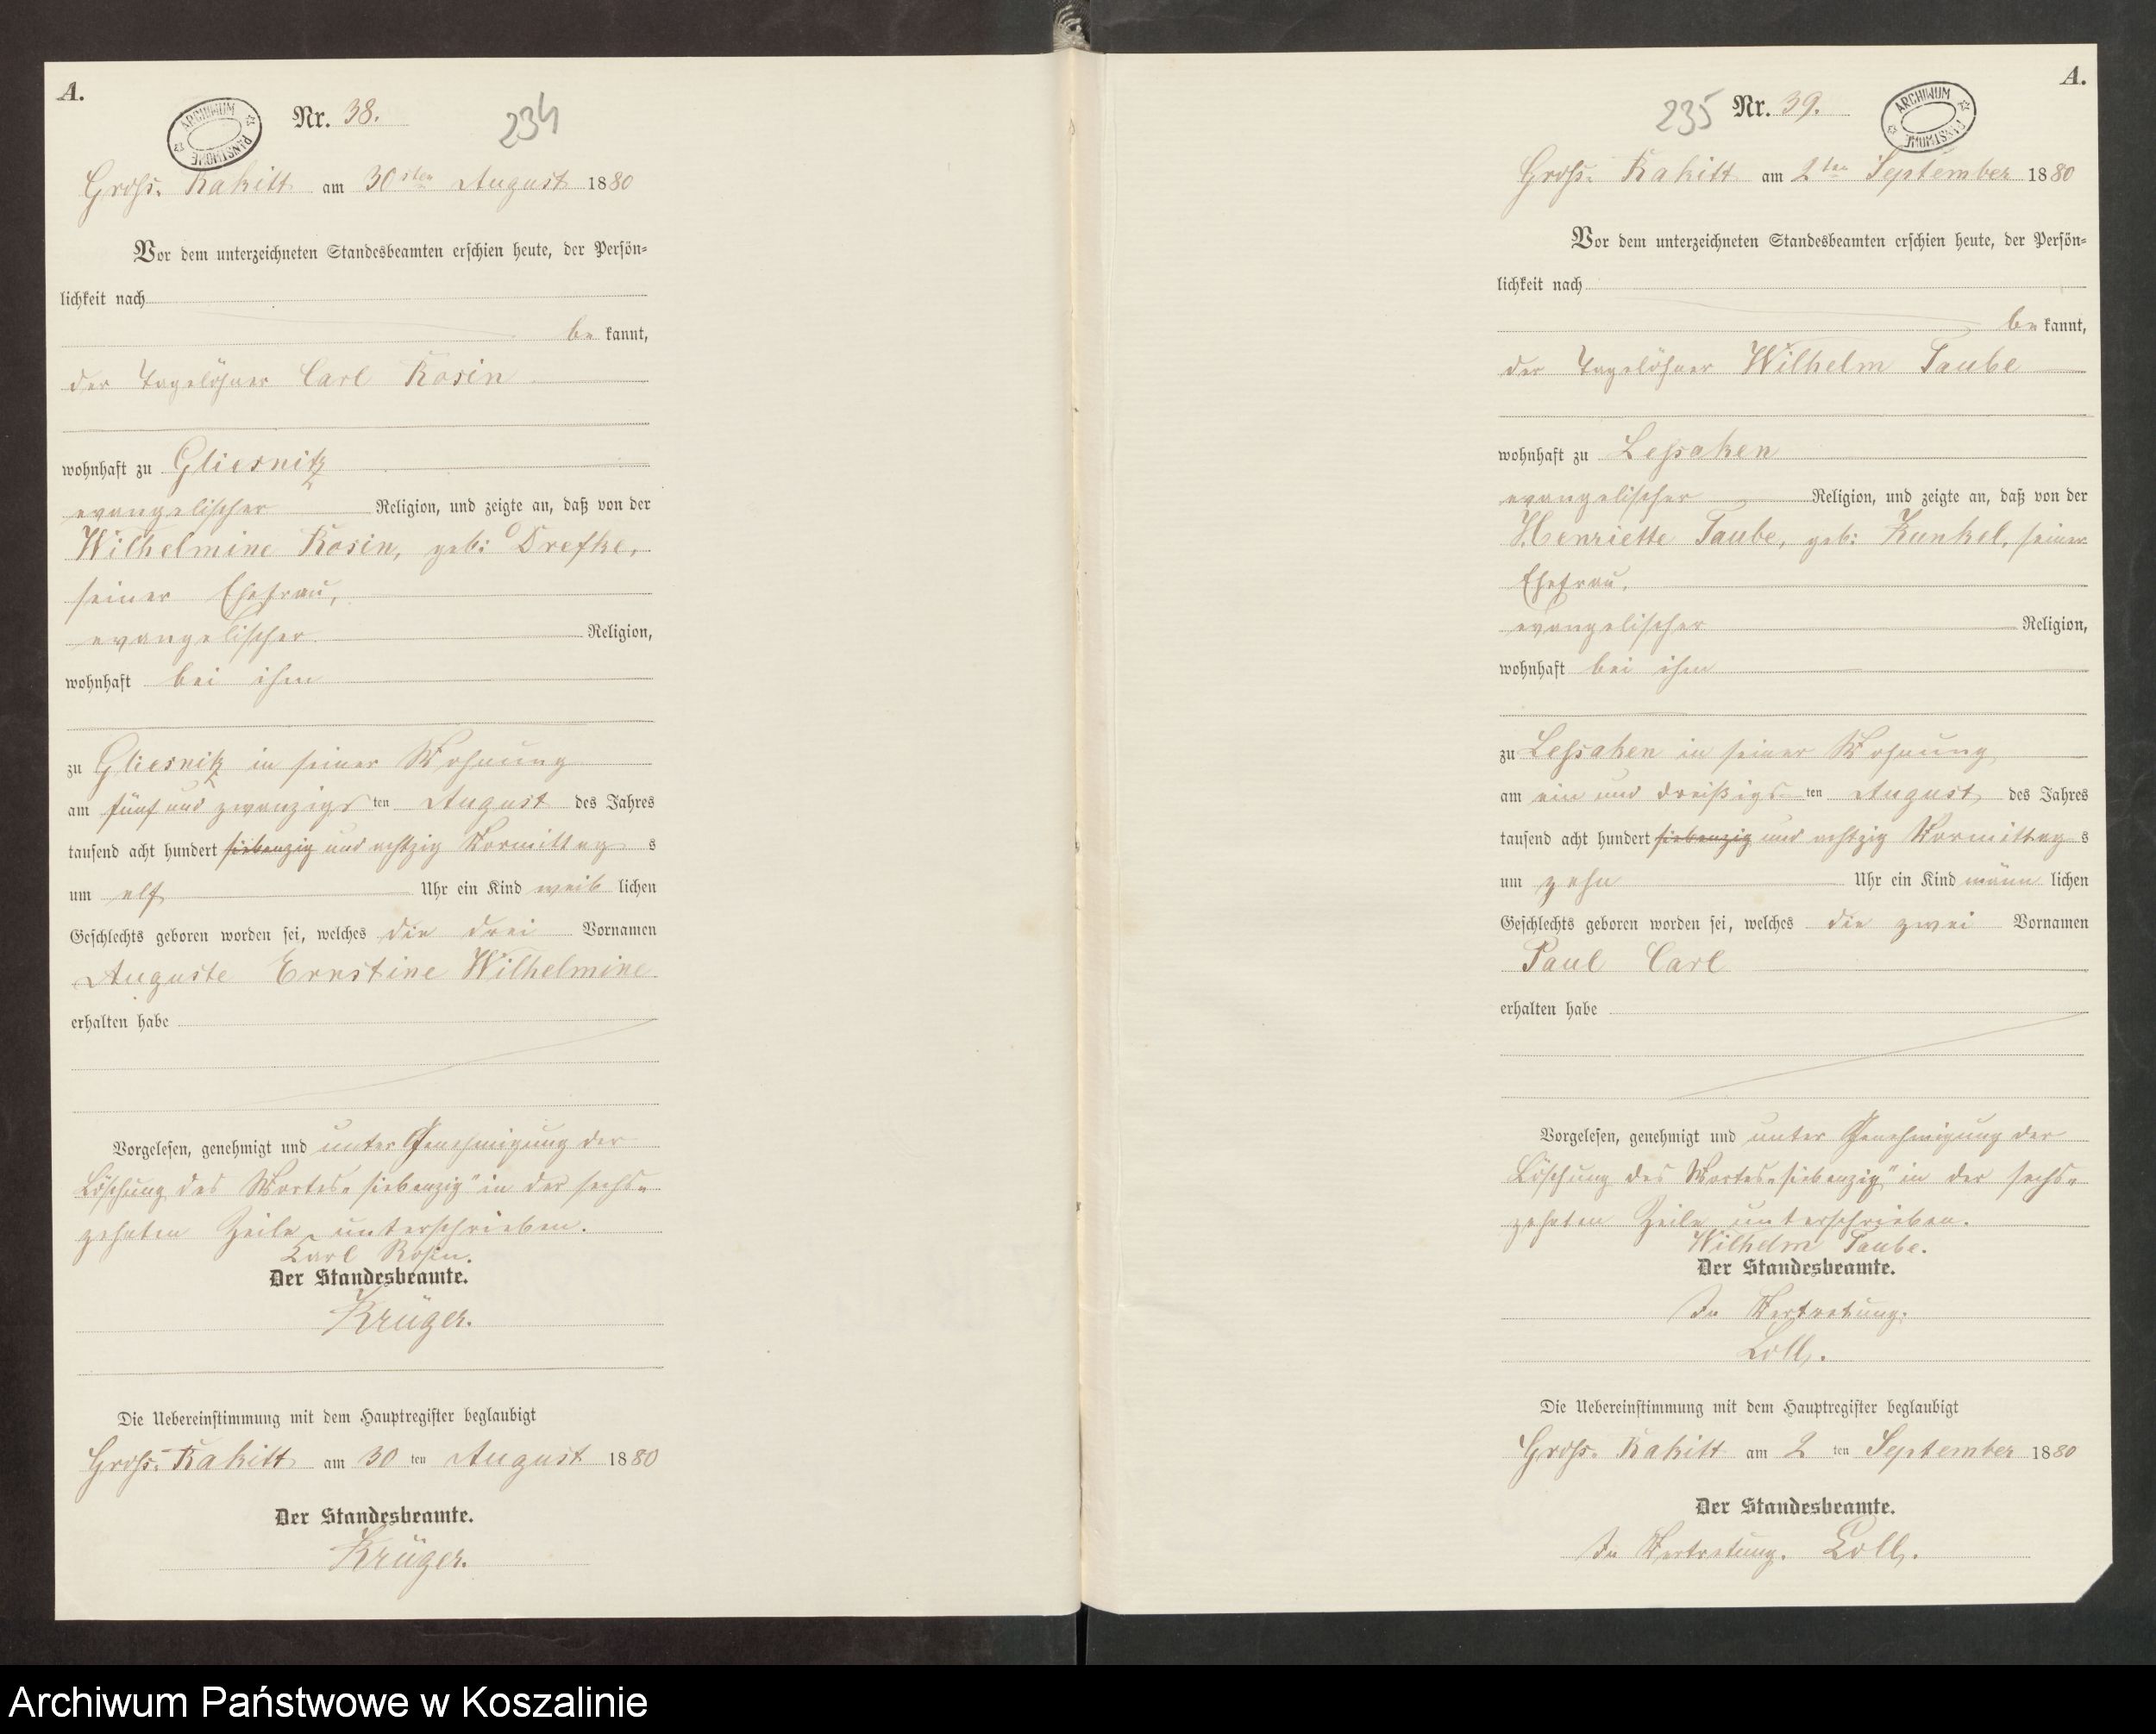 A.
ARCHIWUM PAŃSTWOWE
Nr. 38.
234
Groß-Rakitt am 30sten August 1880
Vor dem unterzeichneten Standesbeamten erschien heute, der Persön-
lichkeit nach
be kannt,
der Tagelöhner Carl Rosin
wohnhaft zu Gliesnitz
evangelischer Religion, und zeigte an, daß von der
Wilhelmine Rosin, geb: Drefke,
seiner Ehefrau,
evangelischer Religion,
wohnhaft bei ihm
zu Gliesnitz in seiner Wohnung
am fünf und zwanzigs ten August des Jahres
tausend acht hundert siebenzig und achtzig Vormittag s
um elf Uhr ein Kind weib lichen
Geschlechts geboren worden sei, welches die drei Vornamen
Auguste Ernstine Wilhelmine
erhalten habe
Vorgelesen, genehmigt und unter Genehmigung der
Löschung des Wortes „siebenzig" in der sechs-
zehnten Zeile unterschrieben.
Karl Rosin.
Der Standesbeamte.
Krüger.
Die Uebereinstimmung mit dem Hauptregister beglaubigt
Groß-Rakitt am 30 ten August 1880
Der Standesbeamte.
Krüger.
A.
235
Nr. 39.
ARCHIWUM PAŃSTWOWE
Groß-Rakitt am 2ten September 1880
Vor dem unterzeichneten Standesbeamten erschien heute, der Persön-
lichkeit nach
be kannt,
der Tagelöhner Wilhelm Taube
wohnhaft zu Leßaken
evangelischer Religion, und zeigte an, daß von der
Henriette Taube, geb: Kunkel, seiner
Ehefrau,
evangelischer Religion,
wohnhaft bei ihm
zu Leßaken in seiner Wohnung
am ein und dreißigs ten August des Jahres
tausend acht hundert siebenzig und achtzig Vormittag s
um zehn Uhr ein Kind männ lichen
Geschlechts geboren worden sei, welches die zwei Vornamen
Paul Carl
erhalten habe
Vorgelesen, genehmigt und unter Genehmigung der
Löschung des Wortes „siebenzig" in der sechs-
zehnten Zeile unterschrieben.
Wilhelm Taube.
Der Standesbeamte.
In Vertretung.
Loll.
Die Uebereinstimmung mit dem Hauptregister beglaubigt
Groß-Rakitt am 2 ten September 1880
Der Standesbeamte.
In Vertretung. Loll.
Archiwum Państwowe w Koszalinie